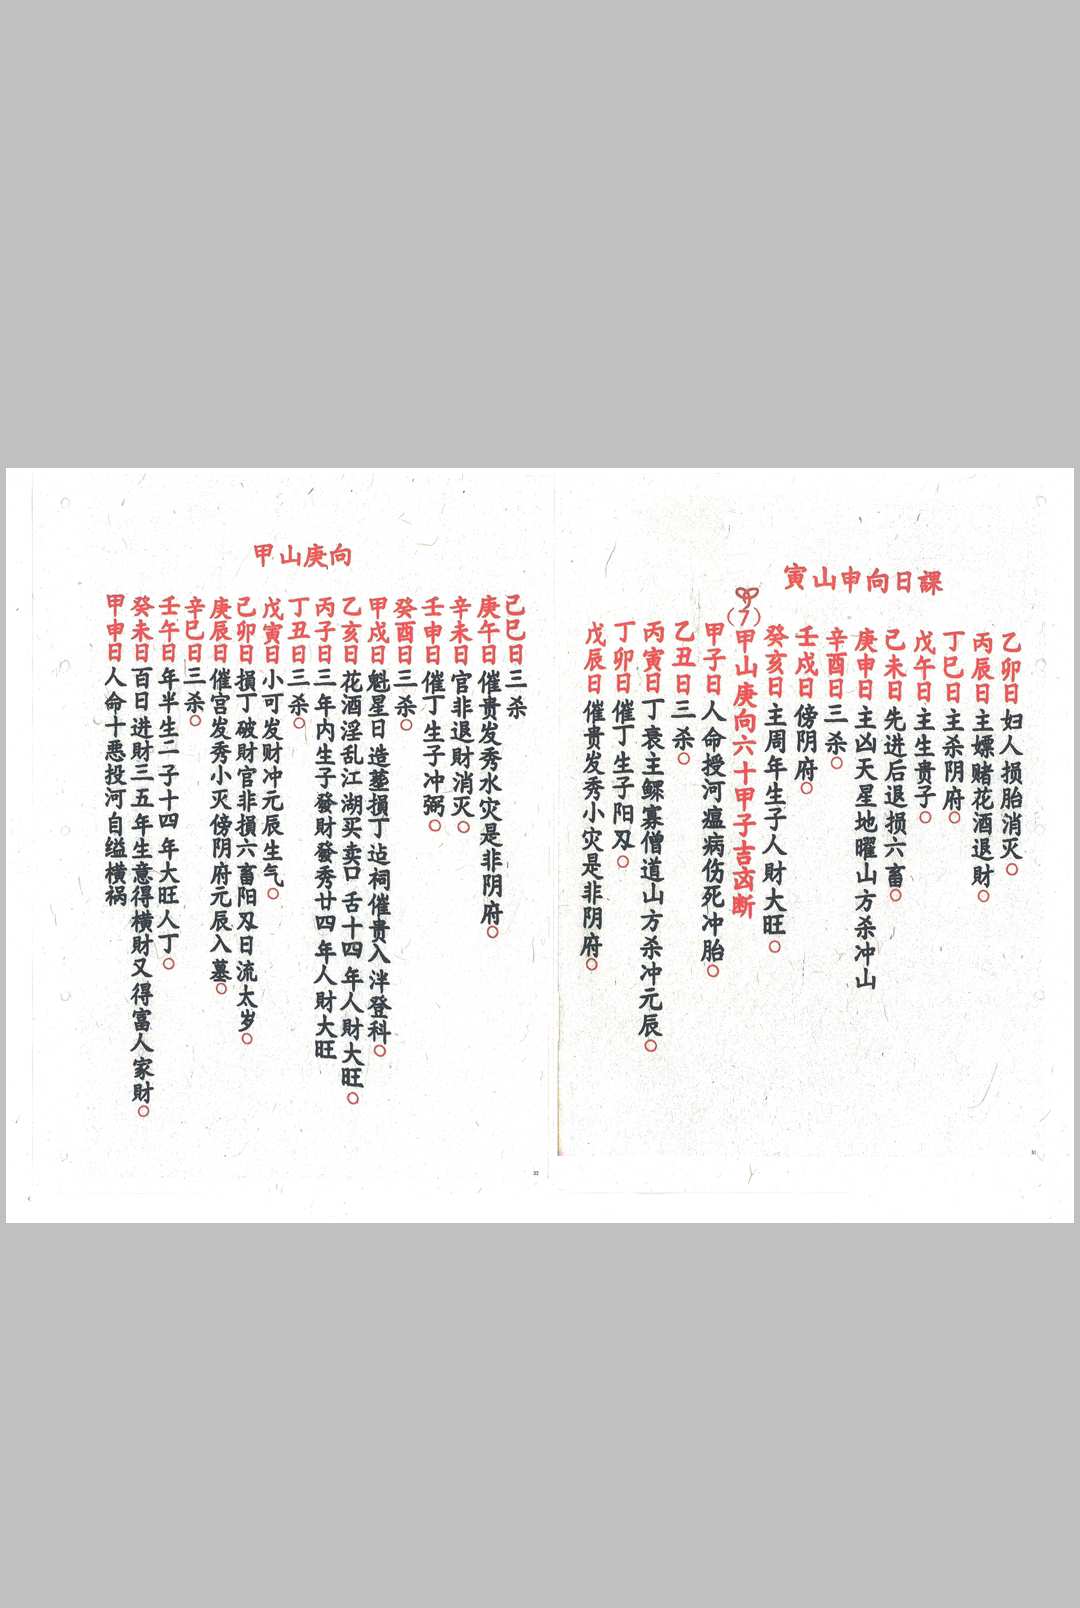 寅山申向日課
乙卯日妇人损胎消灭○
丙辰日主嫖赌花酒退财○
丁巳日主杀阴府○
戊午日主生贵子○
己未日先进后退损六畜○
庚申日主凶天星地曜山方杀冲山
辛酉日三杀○
壬戌日傍阴府○
癸亥日主周年生子人財大旺○
（7）甲山庚向六十甲子吉凶断
甲子日人命授河瘟病伤死冲胎○
乙丑日三杀○
丙寅日丁衰主鳏寡僧道山方杀冲元辰○
丁卯日催丁生子阳刄○
戊辰日催贵发秀小灾是非阴府○
31
甲山庚向
己巳日三杀
庚午日催贵发秀水灾是非阴府○
辛未日官非退財消灭○
壬申日催丁生子冲弼○
癸酉日三杀○
甲戌日魁星日造葬損丁迠祠催贵入泮登科○
乙亥日花酒淫乱江湖买卖口舌十四年人財大旺○
丙子日三年内生子發財發秀廿四年人財大旺
丁丑日三杀○
戊寅日小可发财冲元辰生气○
己卯日損丁破財官非損六畜阳刄日流太岁○
庚辰日催官发秀小灭傍阴府元辰入墓○
辛巳日三杀○
壬午日年半生二子十四年大旺人丁○
癸未日百日进財三五年生意得横財又得富人家財○
甲申日人命十恶投河自缢横祸
32